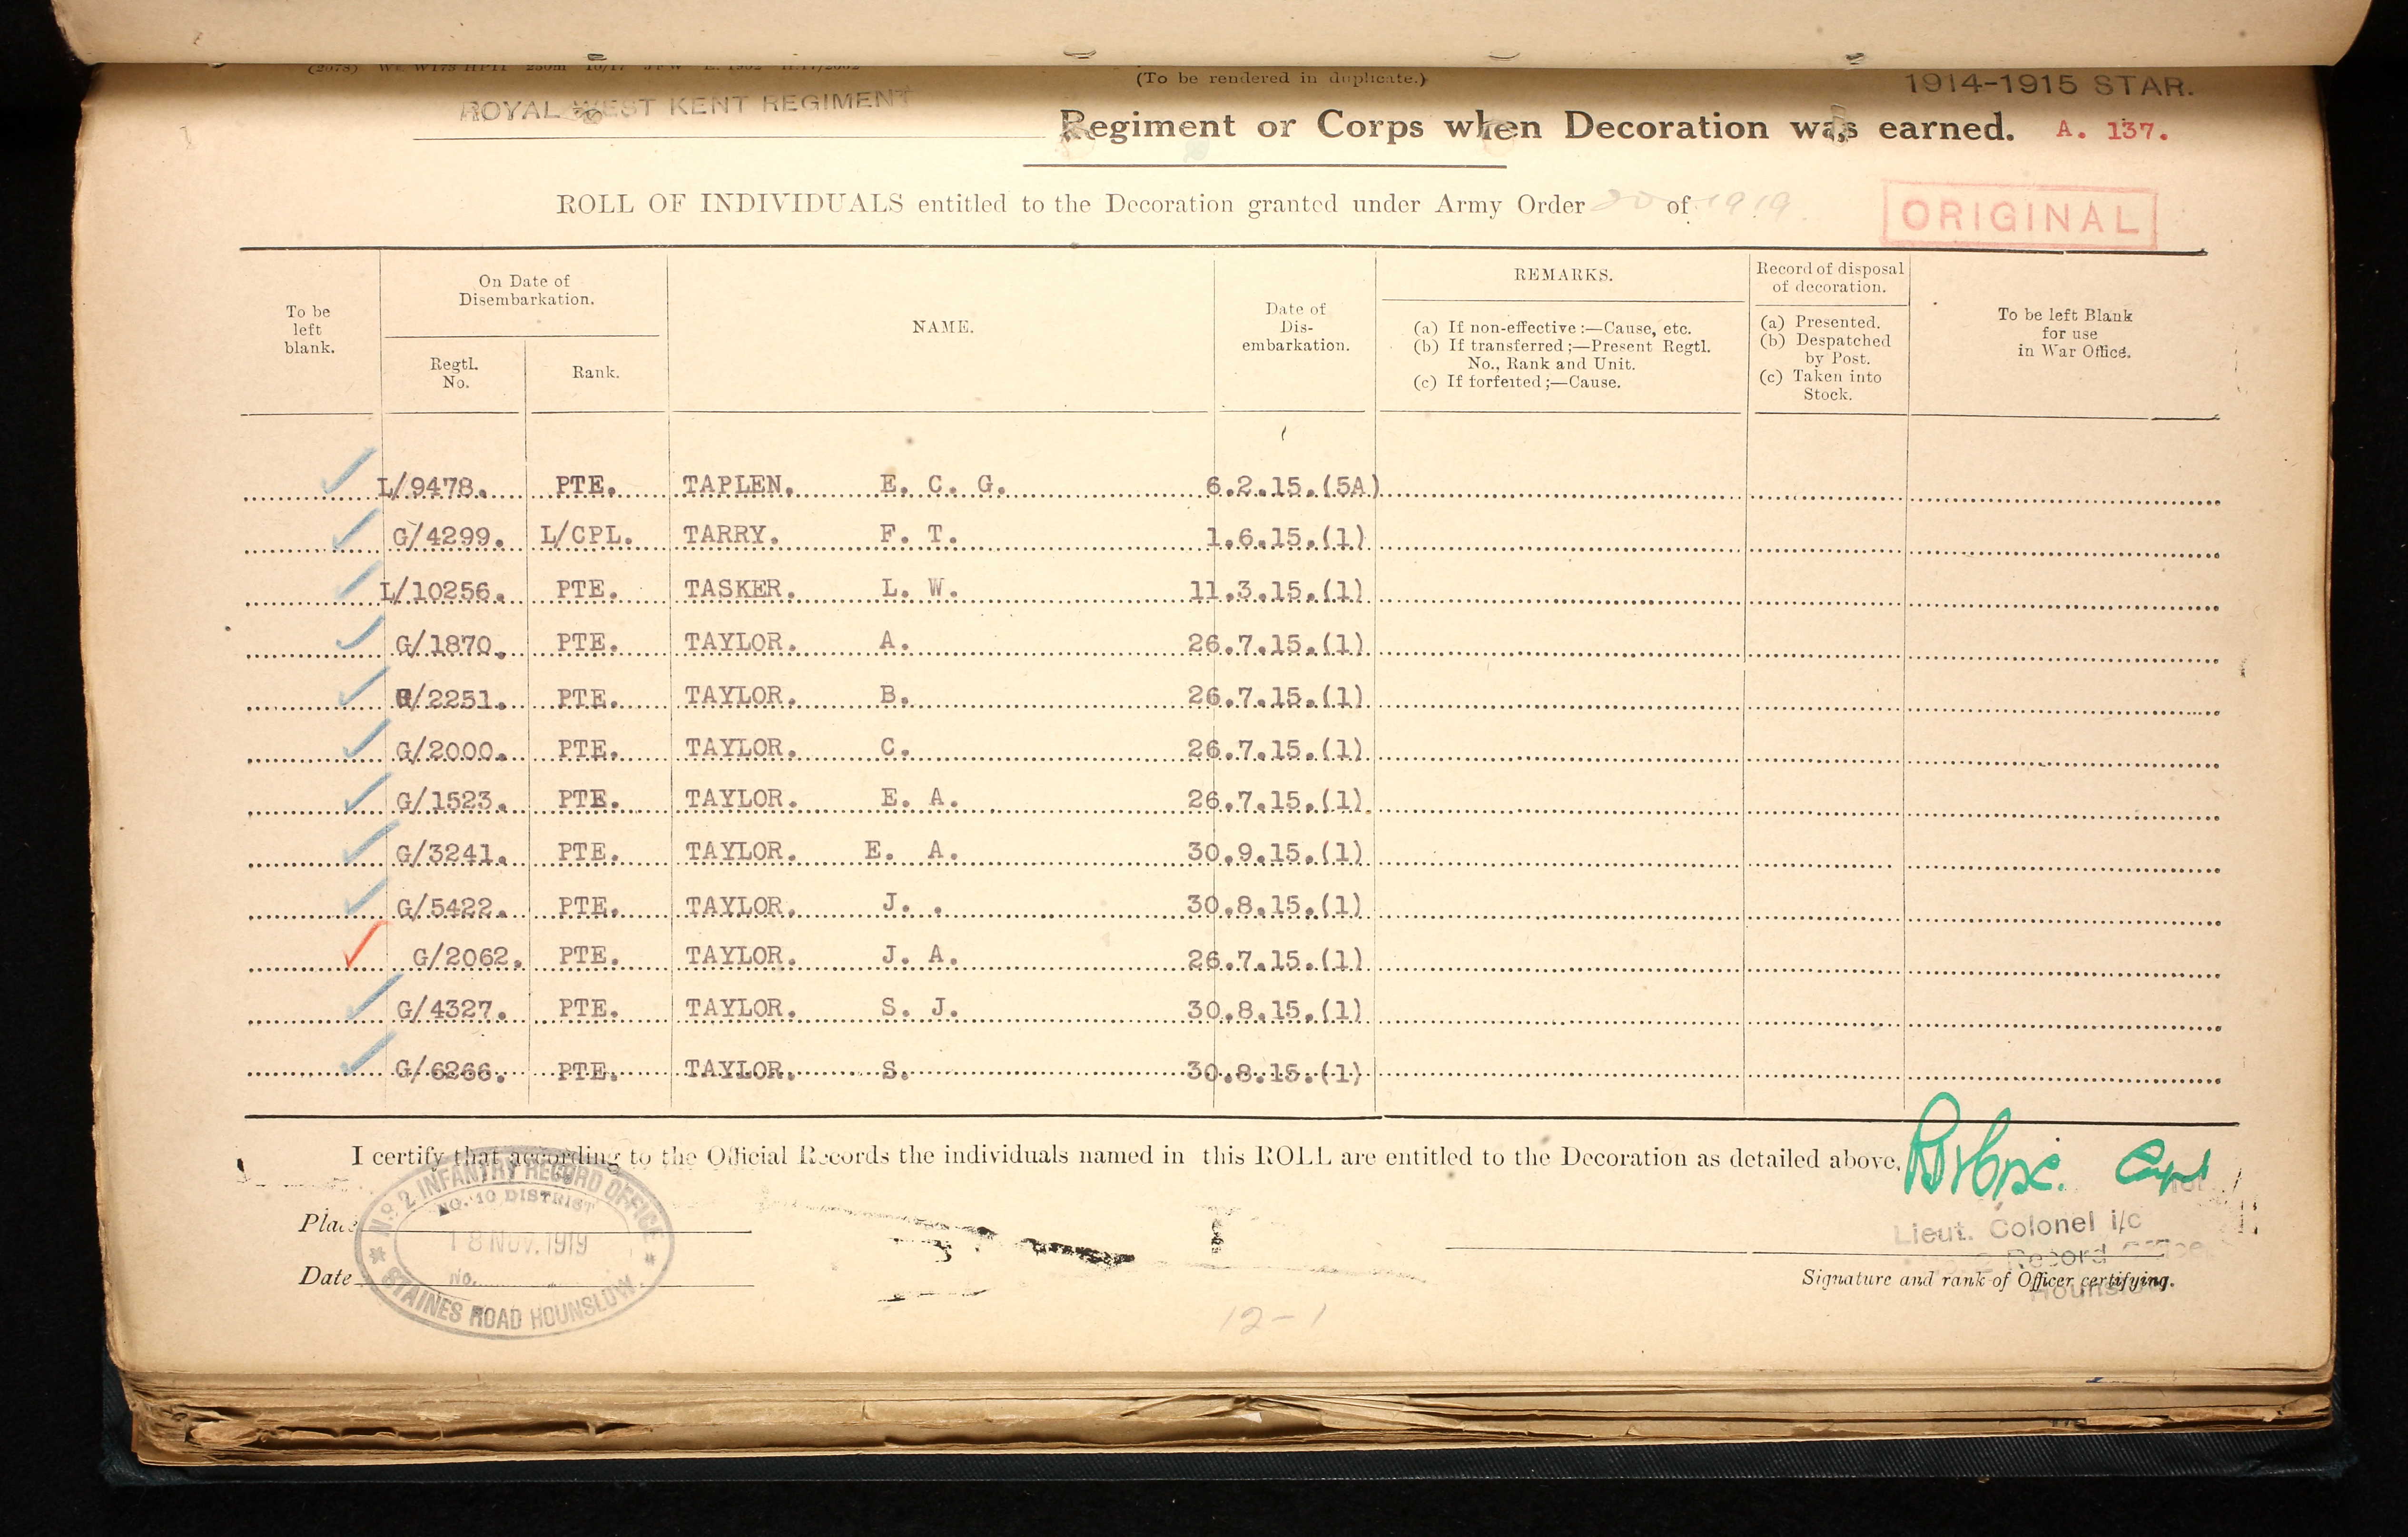 (To be rendered in duplicate.)
1914-1915 STAR.
ROYAL WEST KENT REGIMENT
Regiment or Corps when Decoration was earned. A. 137.
ROLL OF INDIVIDUALS entitled to the Decoration granted under Army Order 20 of 1919.
ORIGINAL
To be left blank.
On Date of Disembarkation.
Regtl. No.
Rank.
NAME.
Date of Dis-embarkation.
REMARKS.
(a) If non-effective:—Cause, etc.
(b) If transferred;—Present Regtl. No., Rank and Unit.
(c) If forfeited;—Cause.
Record of disposal of decoration.
(a) Presented.
(b) Despatched by Post.
(c) Taken into Stock.
To be left Blank for use in War Office.
L/9478. PTE. TAPLEN. E. C. G. 6.2.15.(5A)
G/4299. L/CPL. TARRY. F. T. 1.6.15.(1)
L/10256. PTE. TASKER. L. W. 11.3.15.(1)
G/1870. PTE. TAYLOR. A. 26.7.15.(1)
G/2251. PTE. TAYLOR. B. 26.7.15.(1)
G/2000. PTE. TAYLOR. C. 26.7.15.(1)
G/1523. PTE. TAYLOR. E. A. 26.7.15.(1)
G/3241. PTE. TAYLOR. E. A. 30.9.15.(1)
G/5422. PTE. TAYLOR. J. . 30.8.15.(1)
G/2062. PTE. TAYLOR. J. A. 26.7.15.(1)
G/4327. PTE. TAYLOR. S. J. 30.8.15.(1)
G/6266. PTE. TAYLOR. S. 30.8.15.(1)
I certify that according to the Official Records the individuals named in this ROLL are entitled to the Decoration as detailed above.
Capt
for
Lieut. Colonel i/c
2 Record Office,
Hounslow
Signature and rank of Officer certifying.
Place
Date
No. 2 INFANTRY RECORD OFFICE
NO. 10 DISTRIST
18 NOV. 1919
No.
STAINES ROAD HOUNSLOW
12-1